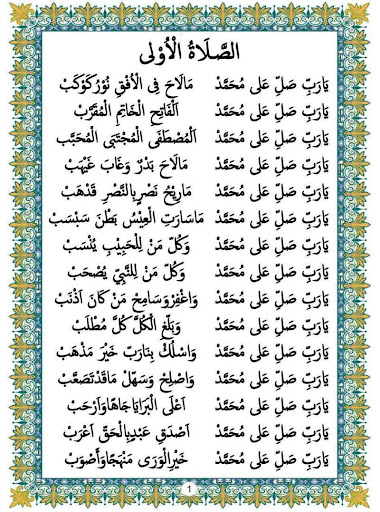 الصَّلَاةُ الْأُوْلَى
يَارَبِّ صَلِّ عَلَى مُحَمَّدْ مَالَاحَ فِى الْأُفْقِ نُوْرُكَوْكَبْ
يَارَبِّ صَلِّ عَلَى مُحَمَّدْ اَلْفَاتِحِ الْخَاتِمِ الْمُقَرَّبْ
يَارَبِّ صَلِّ عَلَى مُحَمَّدْ اَلْمُصْطَفَى الْمُجْتَبَى الْمُحَبَّبْ
يَارَبِّ صَلِّ عَلَى مُحَمَّدْ مَالَاحَ بَدْرٌ وَغَابَ غَيْهَبْ
يَارَبِّ صَلِّ عَلَى مُحَمَّدْ مَارِيْحُ نَصْرٍبِالنَّصْرِ قَدْهَبْ
يَارَبِّ صَلِّ عَلَى مُحَمَّدْ مَاسَارَتِ الْعِيْسُ بَطْنَ سَبْسَبْ
يَارَبِّ صَلِّ عَلَى مُحَمَّدْ وَكُلِّ مَنْ لِلْحَبِيْبِ يُنْسَبْ
يَارَبِّ صَلِّ عَلَى مُحَمَّدْ وَكُلِّ مَنْ لِلنَّبِيِّ يُصْحَبْ
يَارَبِّ صَلِّ عَلَى مُحَمَّدْ وَاغْفِرْوَسَامِحْ مَنْ كَانَ اَذْنَبْ
يَارَبِّ صَلِّ عَلَى مُحَمَّدْ وَبَلِّغِ الْكُلَّ كُلَّ مُطْلَبْ
يَارَبِّ صَلِّ عَلَى مُحَمَّدْ وَاسْلُكْ بِنَارَبِّ خَيْرَ مَذْهَبْ
يَارَبِّ صَلِّ عَلَى مُحَمَّدْ وَاصْلِحْ وَسَهِّلْ مَاقَدْتَصَعَّبْ
يَارَبِّ صَلِّ عَلَى مُحَمَّدْ اَعْلَى الْبَرَايَاجَاهًاوَاَرْحَبْ
يَارَبِّ صَلِّ عَلَى مُحَمَّدْ اَصْدَقِ عَبْدٍبِالْحَقِّ اَعْرَبْ
يَارَبِّ صَلِّ عَلَى مُحَمَّدْ خَيْرِالْوَرَى مَنْهَجًاوَاَصْوَبْ
1